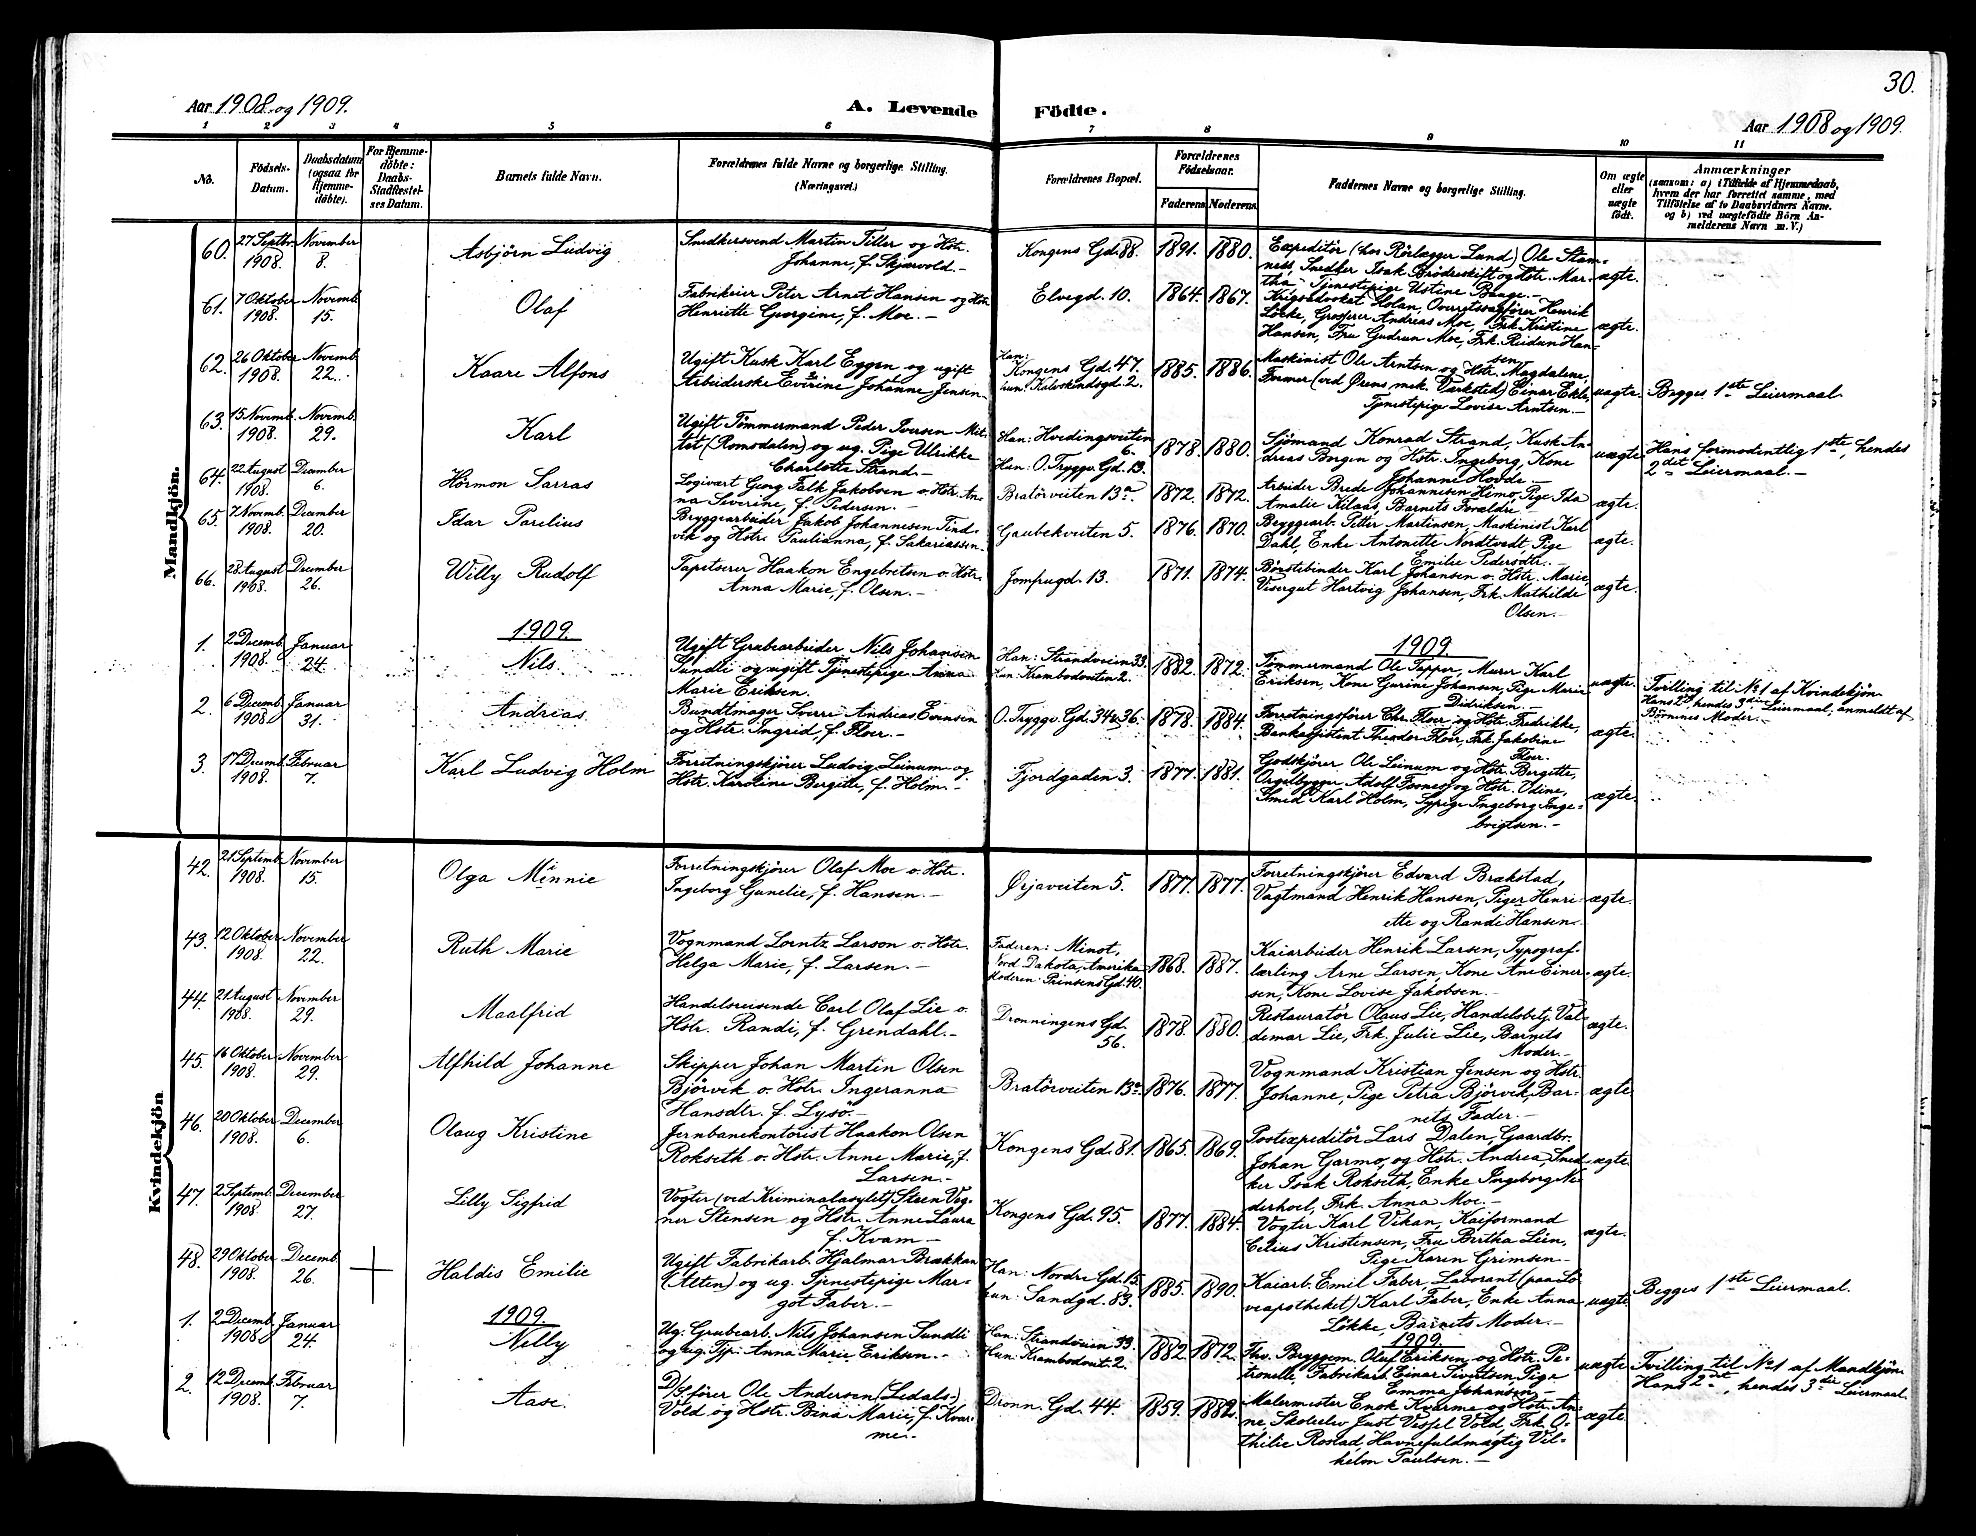 30.
Aar 1908 og 1909.
A. Levende Födte.
Aar 1908 og 1909.
1 2 3 4 5 6 7 8 9 10 11
No.
Födsels-Datum.
Daabsdatum (ogsaa for Hjemme-döbte).
For Hjemme-döbte: Daabs-Stadfæstel-ses Datum.
Barnets fulde Navn.
Forældrenes fulde Navne og borgerlige Stilling. (Næringsvei.)
Forældrenes Bopæl.
Forældrenes Födselsaar.
Faderens. Moderens.
Faddernes Navne og borgerlige Stilling.
Om ægte eller uægte födt.
Anmærkninger
(saasom: a) i Tilfælde af Hjemmedaab,
hvem der har forrettet samme, med
Tilföielse af to Daabsvidners Navne.
og b) ved uægtefödte Börn An-
melderens Navn m. V.)
Mandkjön.
60. 27 Septbr. 1908. November 8. Asbjörn Ludvig
Snedkersvend Martin Tiller og Hstr.
Johanne, f. Skjærvold.-
Kongens Gd. 88. 1891. 1880.
Expeditör (hos Rörlægger Lund) Ole Stam-
ness, Snedker Isak Brödreskift og Hstr. Mar-
tha, Tjenestepige Ustine Baage.-
ægte.
61. 7 Oktober 1908. Novemb. 15. Olaf
Fabrikeier Peter Arnet Hansen og Hstr.
Henriette Georgine, f. Moe.-
Elvegd. 10. 1864. 1867.
Krigsadvokat Holan, Overretssagförer Henrik
Löcke, Grosserer Andreas Moe, Frk. Kristine
Hansen, Fru Gudrun Moe, Frk. Reidun Han-
sen.-
ægte.
62. 26 Oktober 1908. Novemb. 22. Kaare Alfons
Ugift Kusk Karl Eggen og ugift
Arbeiderske Evirine Johanne Jensen.-
Han: Kongens Gd. 47.
hun: Kalvskindsgd. 2.
1885. 1886.
Maskinist Ole Arntsen og Hstr. Magdalene,
Former (ved Ørens mek. Værksted) Einar Eklo,
Tjenestepige Lovise Arntsen.-
uægte. Begges 1ste Leiermaal.
63. 15 Novemb. 1908. Novemb. 29. Karl
Ugift Tømmermand Peder Iversen Mit-
tet (Romsdalen) og ug. Pige Ulrikke
Charlotte Strand.-
Han: Hvedingsveiten 6.-
Han: O. Tryggv. Gd. 13.
1878. 1880.
Sjömand Konrad Strand, Kusk An-
dreas Borgen og Hstr. Ingeborg, Kone
Johanne Hovde.-
uægte. Hans formodentlig 1ste, hendes
2det Leiermaal.-
64. 22 August 1908. December 6. Hörmon Sarras
Logivært Georg Falk Jakobsen o. Hstr. An-
na Severine, f. Pedersen.-
Bratörveiten 13a 1872. 1872.
Arbeider Brede Johannesen Hemo, Pige Ida
Amalie Kilaas, Barnets Forældre.-
ægte.
65. 7 Novemb. 1908. December 20. Idar Parelius
Bryggearbeider Jakob Johannesen Tind-
vik og Hstr. Paulianna, f. Sakariassen.-
Gaubekveiten 5. 1876. 1870.
Bryggearb. Petter Martinsen, Maskinist Karl
Dahl, Enke Antonette Nordtvedt, Pige
Emilie Pedersdtr.-
ægte.
66. 28 August 1908. December 26. Willy Rudolf
Tapetserer Haakon Engebretsen o. Hstr.
Anna Marie, f. Olsen.-
Jomfrugd. 13. 1871. 1874.
Børstebinder Karl Johansen o. Hstr. Marie,
Visergut Hartvig Johansen, Frk. Mathilde
Olsen.-
ægte.
1909. 1909.
1. 2 Decemb. 1908. Januar 24. Nils.
Ugift Grubearbeider Nils Johansen
Sundli og ugift Tjenestepige Anna
Marie Eriksen.
Han: Strandveien 33.
Hun: Krambodveiten 2.
1882. 1872.
Tömmermand Ole Tapper, Murer Karl
Eriksen, Kone Gurine Johansen, Pige Marie
Didriksen.
uægte. Tvilling til No 1 af Kvindekjön
Hans 2det hendes 3die Leiermaal, anmeldt af
Børnenes Moder.-
2. 6 Decemb. 1908. Januar 31. Andreas.
Bundtmager Sverre Andreas Evensen
og Hstr. Ingrid, f. Floer.-
O. Tryggv. Gd. 34 & 36. 1878. 1884.
Forretningsfører Chr. Floer og Hstr. Fredrikke,
Bankassistent Theodor Floer, Frk. Jakobine
Floer.
ægte.
3. 17 Decemb. 1908. Februar 7. Karl Ludvig Holm
Forretningskjörer Ludvig Leinum og
Hstr. Karoline Bergitte, f. Holm.-
Fjordgaden 3. 1877. 1881.
Godskjörer Ole Leinum og Hstr. Bergitte,
Orgelbygger Adolf Fosnes og Hstr. Odine,
Smed Karl Holm, Sypige Ingeborg Inge-
brigtsen.-
ægte.
Kvindekjön
42. 21 Septemb. 1908. November 15. Olga Minnie
Forretningskjörer Olaf Moe o. Hstr.
Ingeborg Gunelie, f. Hansen.-
Ørjaveiten 5. 1877. 1877.
Forretningskjörer Edvard Brækstad,
Vagtmand Henrik Hansen, Piger Henri-
ette og Randi Hansen.
ægte.
43. 12 Oktober 1908. November 22. Ruth Marie
Vognmand Lorntz Larson o. Hstr.
Helga Marie, f. Larsen.-
Faderen: Minot,
Nord Dakota, Amerika
Moderen: Prinsens Gd. 40.
1868. 1887.
Kaiarbeider Henrik Larsen, Typograf-
lærling Arne Larsen, Kone Ane Einer-
sen, Kone Lovise Jakobsen.-
ægte.
44. 21 August 1908. November 29. Maalfrid
Handelsreisende Carl Olaf Lie o.
Hstr. Randi, f. Grendahl.-
Dronningens Gd. 56. 1878. 1880.
Restauratör Olaus Lie, Handelsbetj. Val-
demar Lie, Frk. Julie Lie, Barnets
Moder.-
ægte.
45. 16 Oktober 1908. November 29. Alfhild Johanne
Skipper Johan Martin Olsen
Bjørvik o. Hstr. Ingeranna
Hansdtr. f. Lysö.-
Bratörveiten 13a 1876. 1877.
Vognmand Kristian Jensen og Hstr.
Johanne, Pige Petra Bjørvik, Bar-
nets Fader.-
ægte
46. 20 Oktober 1908. December 6. Olaug Kristine
Jernbanekontorist Haakon Olsen
Rokseth o. Hstr. Anne Marie, f.
Larsen.-
Kongens Gd. 81. 1865. 1869.
Postexpeditör Lars Dalen, Gaardbr.
Johan Garmo, og Hstr. Andrea, Sned-
ker Isak Rokseth, Enke Ingeborg Ne-
derhoel, Frk. Anna Moe.-
ægte.
47. 2 Septemb. 1908. December 27. Lilly Sigfrid
Vogter (ved Kriminalasylet) Steen Vog-
ner Stensen og Hstr. Anne Laura
f. Kvam-
Kongens Gd. 95. 1877. 1884.
Vogter Karl Vikan, Kaiformand
Celius Kristensen, Fru Bertha Lein,
Pige Karen Grimsen-
ægte.
48. 29 Oktober 1908. Decemb. 26. Haldis Emilie
Ugift Fabrikarb. Hjalmar Brækkan
(Alten) og ug. Tjenestepige Mar-
got Faber.-
Han: Nordre Gd. 15.
hun: Sandgd. 83.
1885. 1890.
Kaiarb. Emil Faber, Laborant (paa Lö-
veapotheket) Karl Faber, Enke Anna
Løkke, Barnets Moder.-
uægte. Begges 1ste Leiermaal.
1909. 1909
1. 2 Decemb. 1908. Januar 24. Nelly
Ug. Grubearb. Nils Johansen Sundli
og ug. Tjp. Anna Marie Eriksen.-
Han: Strandveien 33.
Hun Krambodveit. 2.
1882. 1872.
Fhv. Bryggem. Oluf Eriksen og Hstr. Pe-
tronelle, Fabrikarb. Einar Sivertsen, Pige
Emma Johansen-
uægte. Tvilling til No 1 af Mandkjön
Hans 2det, hendes 3die Leiermaal.
2. 12 Decemb. 1908. Februar 7. Aase.
D/s förer Ole Andersen (Ledals-)
Vold og Hstr. Bina Marie, f. Kvar-
me.-
Dronn. Gd. 44. 1859. 1882.
Malermester Enok Kvarme og Hstr. An-
ne, Skoleelev Just Vessel Vold, Frk. O-
thilie Rostad, Havnefuldmægtig Vil-
helm Paulsen.-
ægte.